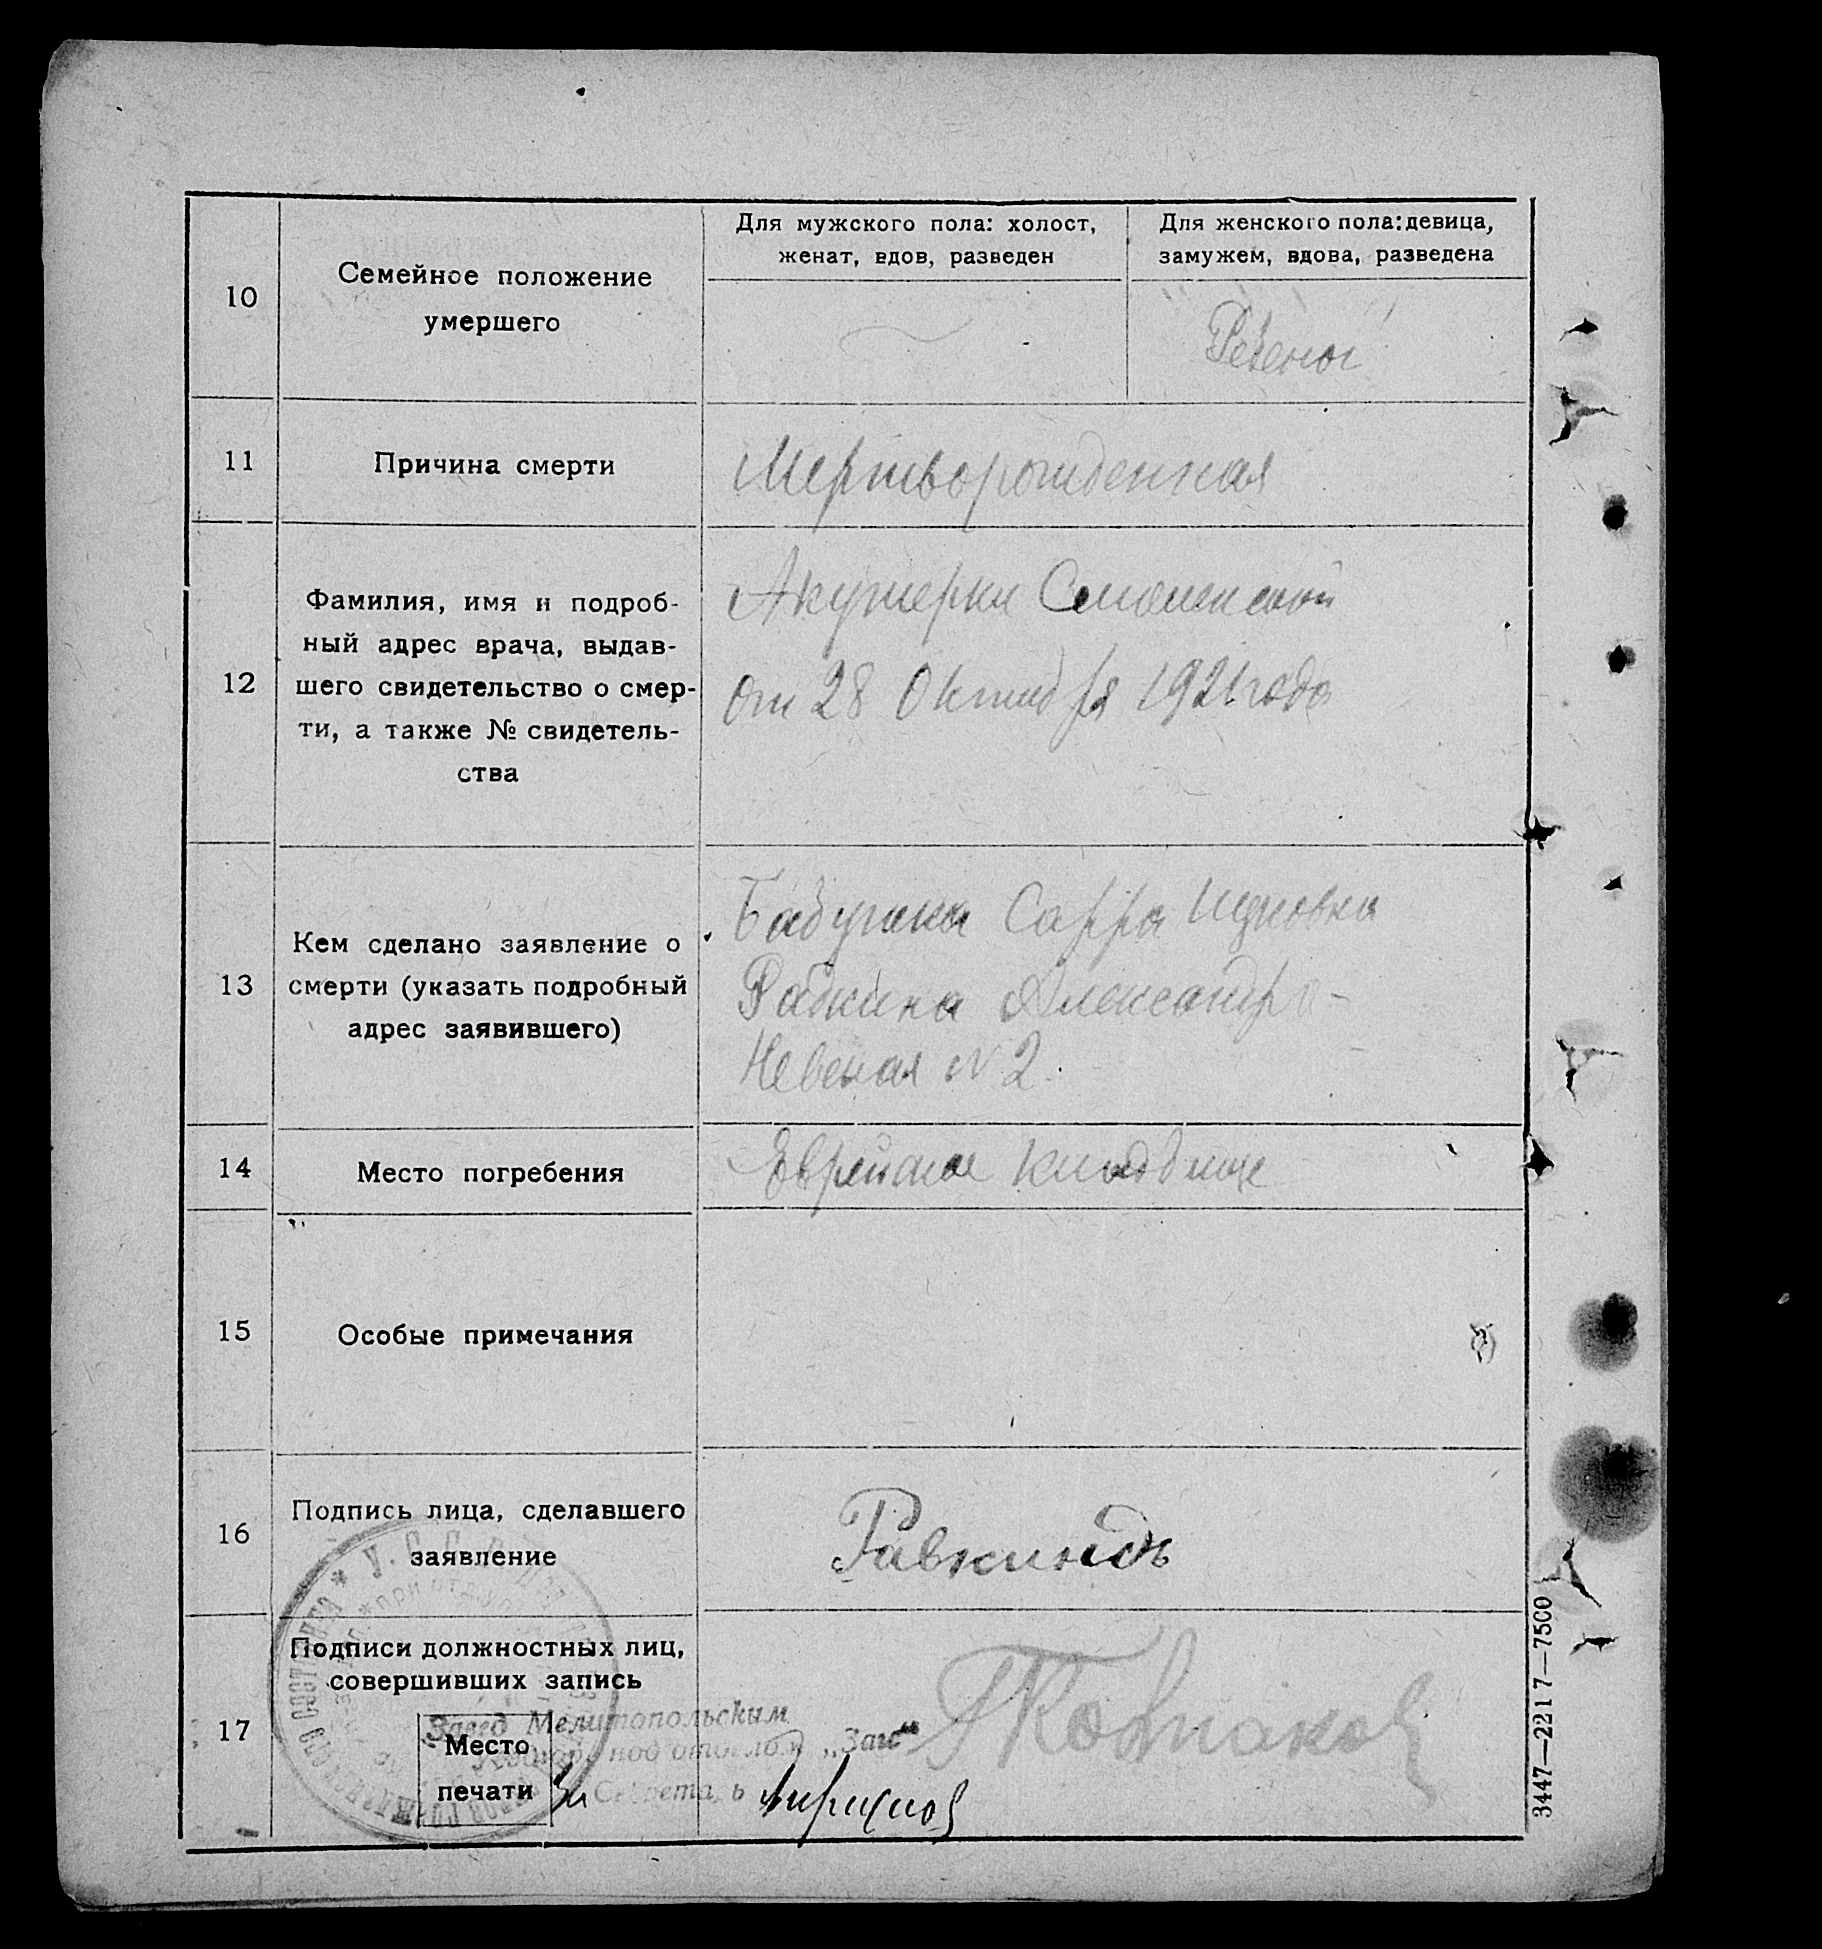 10
Семейное положение
умершего
Для мужского пола: холост,
женат, вдов, разведен
Для женского пола: девица,
замужем, вдова, разведена
Ребенок
11
Причина смерти
Мертворожденная
12
Фамилия, имя и подроб-
ный адрес врача, выдав-
шего свидетельство о смер-
ти, а также № свидетель-
ства
Акушерки
от 28 Октября 1921 года
13
Кем сделано заявление о
смерти (указать подробный
адрес заявившего)
Бабушка Сарра
Рабкина Александро-
Невская N 2.
14
Место погребения
Еврейское кладбище
15
Особые примечания
16
Подпись лица, сделавшего
заявление
Равкиндъ
17
Подписи должностных лиц,
совершивших запись
Место
печати
Завед Мелитопольским
под отделом „Загс“
За Секретарь
3447—2217—7500